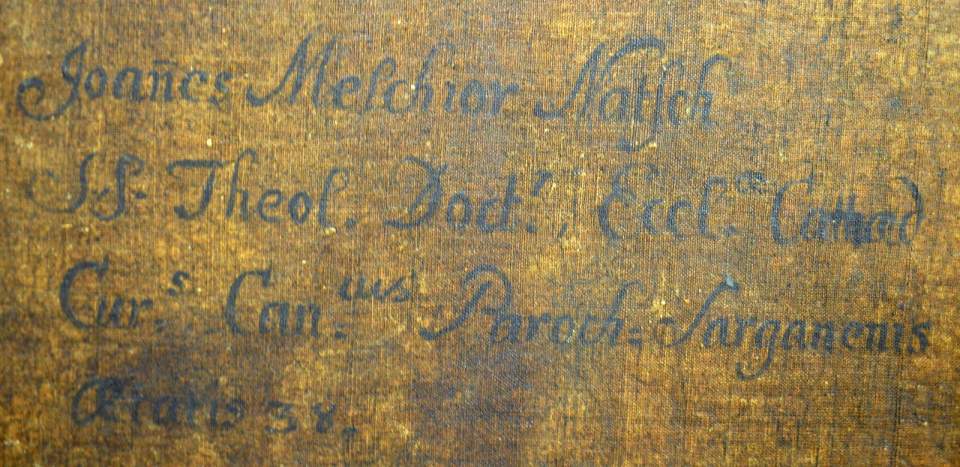 Joan̄es Melchior Natsch
S.S. Theol. Doct.ʳ, Eccl.ᵃᵉ Cathed
Cur.ˢ Can.ᶜᵘˢ Paroch: Sarganenis
Ætatis 38.